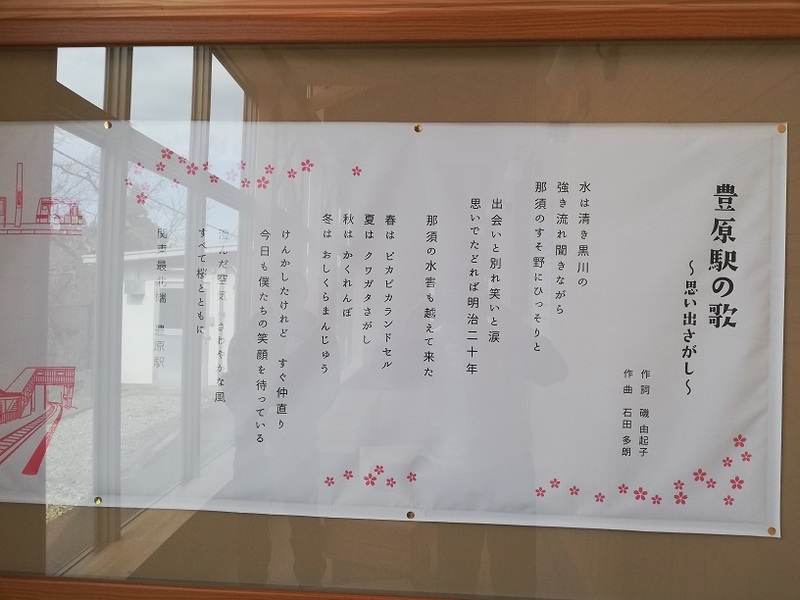 豊原駅の歌
~思い出さがし~
作詞 磯 由起子
作曲 石田 多朗
水は清き黒川の
強き流れ聞きながら
那須のすそ野にひっそりと
出会いと別れ笑いと涙
思いでたどれば明治二十年
那須の水害も越えて来た
春は ピカピカランドセル
夏は クワガタさがし
秋は かくれんぼ
冬は おしくらまんじゅう
けんかしたけれど すぐ仲直り
今日も僕たちの笑顔を待っている
澄んだ空気 さわやかな風
すべて桜とともに
関東最北端 豊原駅